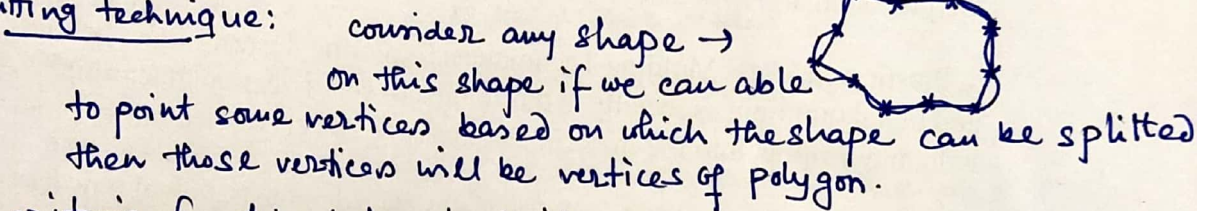 technique: consider any shape →
on this shape if we can able
to point some vertices based on which the shape can be splitted
then those vertices will be vertices of polygon.